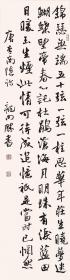 錦瑟無端五十弦一弦一柱思華年莊生曉夢迷
蝴蝶望帝春心託杜鵑滄海月明珠有淚藍田
日暖玉生煙此情可待成追憶只是當時已惘然
唐李商隱詩 書